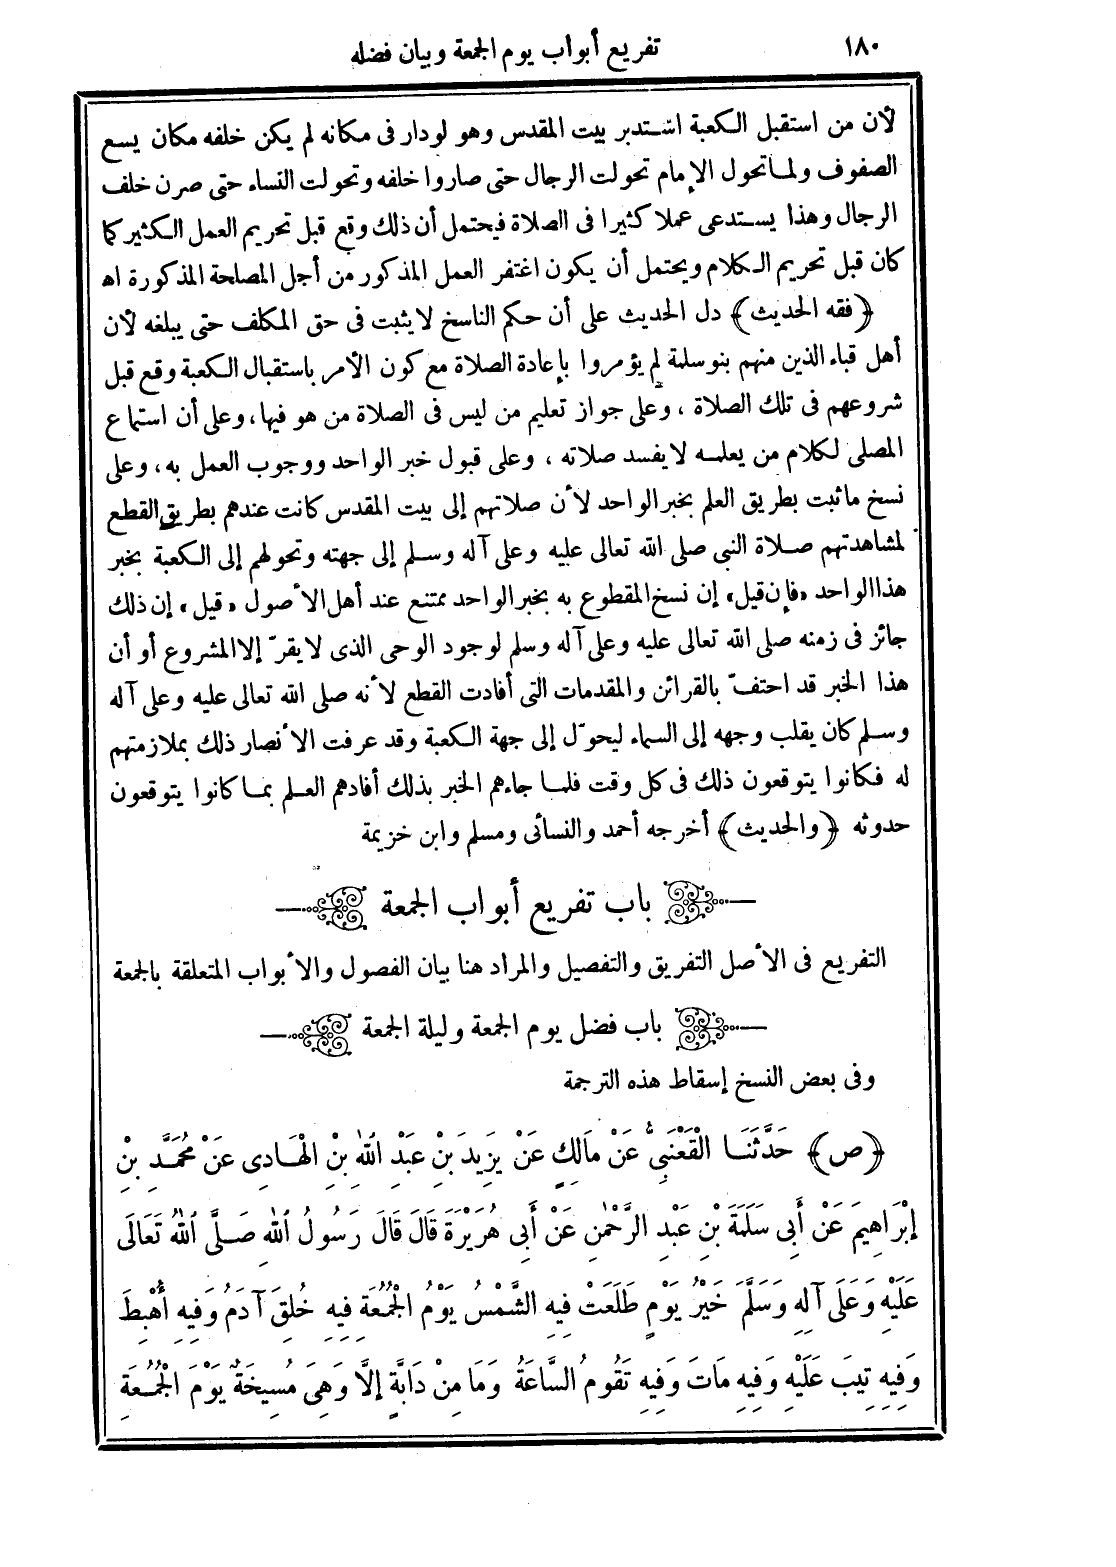 ١٨٠ تفريع أبواب يوم الجمعة وبيان فضله
لأن من استقبل الكعبة استدبر بيت المقدس وهو لودار فى مكانه لم يكن خلفه مكان يسع
الصفوف ولما تحول الإمام تحولت الرجال حتى صاروا خلفه وتحولت النساء حتى صرن خلف
الرجال وهذا يستدعى عملا كثيرا فى الصلاة فيحتمل أن ذلك وقع قبل تحريم العمل الكثير كما
كان قبل تحريم الكلام ويحتمل أن يكون اغتفر العمل المذكور من أجل المصلحة المذكورة اه
﴿فقه الحديث﴾ دل الحديث على أن حكم الناسخ لايثبت فى حق المكلف حتى يبلغه لأن
أهل قباء الذين منهم بنو سلمة لم يؤمروا بإعادة الصلاة مع كون الأمر باستقبال الكعبة وقع قبل
شروعهم فى تلك الصلاة ، وعلى جواز تعليم من ليس فى الصلاة من هو فيها، وعلى أن استماع
المصلى لكلام من يعلمه لايفسد صلاته ، وعلى قبول خبر الواحد ووجوب العمل به، وعلى
نسخ ماثبت بطريق العلم بخبر الواحد لأن صلاتهم إلى بيت المقدس كانت عندهم بطريق القطع
لمشاهدتهم صلاة النبى صلى الله تعالى عليه وعلى آله وسلم إلى جهته وتحولهم إلى الكعبة بخبر
هذا الواحد «فإن قيل» إن نسخ المقطوع به بخبر الواحد ممتنع عند أهل الأصول «قيل» إن ذلك
جائز فى زمنه صلى الله تعالى عليه وعلى آله وسلم لوجود الوحى الذى لايقرّ إلا المشروع أو أن
هذا الخبر قد احتفّ بالقرائن والمقدمات التى أفادت القطع لأنه صلى الله تعالى عليه وعلى آله
وسلم كان يقلب وجهه إلى السماء ليحوّل إلى جهة الكعبة وقد عرفت الأنصار ذلك بملازمتهم
له فكانوا يتوقعون ذلك فى كل وقت فلما جاءهم الخبر بذلك أفادهم العلم بما كانوا يتوقعون
حدوثه ﴿والحديث﴾ أخرجه أحمد والنسائى ومسلم وابن خزيمة
باب تفريع أبواب الجمعة
التفريع فى الأصل التفريق والتفصيل والمراد هنا بيان الفصول والأبواب المتعلقة بالجمعة
باب فضل يوم الجمعة وليلة الجمعة
وفى بعض النسخ إسقاط هذه الترجمة
﴿ص﴾ حَدَّثَنَا الْقَعْنَبِىُّ عَنْ مَالِكٍ عَنْ يَزِيدَ بْنِ عَبْدِ اللهِ بْنِ الْهَادِى عَنْ مُحَمَّدِ بْنِ
إِبْرَاهِيمَ عَنْ أَبِى سَلَمَةَ بْنِ عَبْدِ الرَّحْمٰنِ عَنْ أَبِى هُرَيْرَةَ قَالَ قَالَ رَسُولُ اللهِ صَلَّى اللهُ تَعَالَى
عَلَيْهِ وَعَلَى آلِهِ وَسَلَّمَ خَيْرُ يَوْمٍ طَلَعَتْ فِيهِ الشَّمْسُ يَوْمُ الْجُمُعَةِ فِيهِ خُلِقَ آدَمُ وَفِيهِ أُهْبِطَ
وَفِيهِ تِيبَ عَلَيْهِ وَفِيهِ مَاتَ وَفِيهِ تَقُومُ السَّاعَةُ وَمَا مِنْ دَابَّةٍ إِلَّا وَهِىَ مُسِيخَةٌ يَوْمَ الْجُمُعَةِ